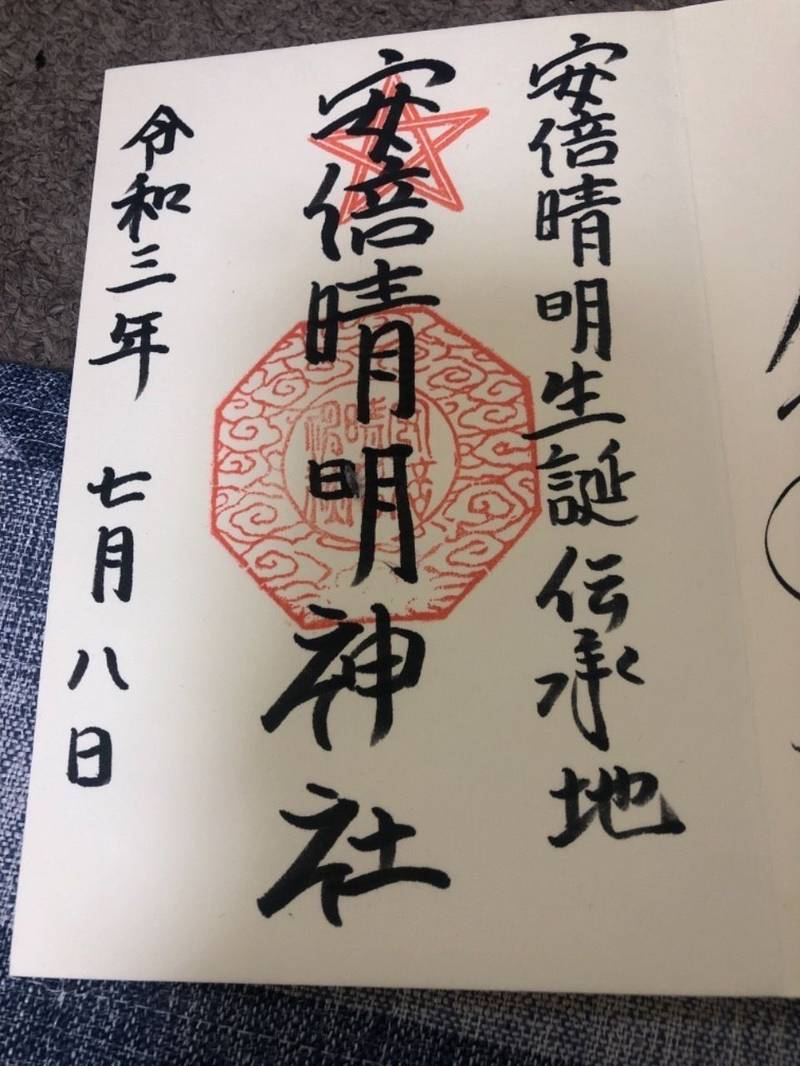 安倍晴明生誕伝承地
安倍晴明神社
令和三年 七月八日